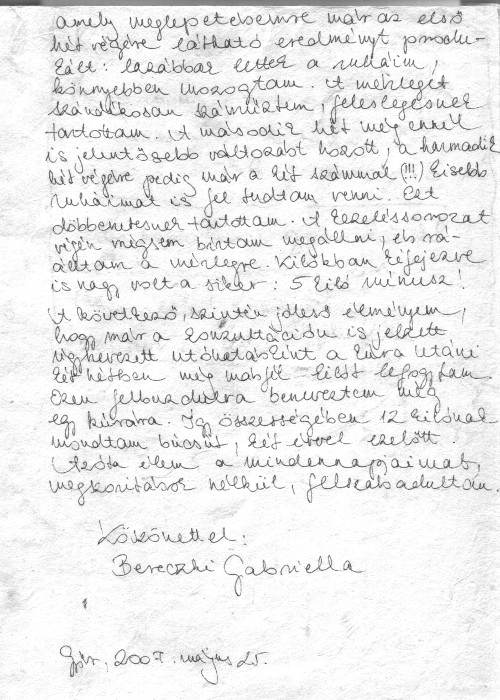 amely meglepetésemre már az első
hét végére látható eredményt produ-
kált: lazábbak lettek a ruháim,
könnyebben mozogtam. A mérleget
szándékosan száműztem, feleslegesnek
tartottam. A második hét még ennél
is jelentősebb változást hozott, a harmadik
hét végére pedig már a két számmal (!!!) kisebb
ruháimat is fel tudtam venni. Ezt
döbbenetesnek tartottam. A kezeléssorozat
végén mégsem bírtam megállni, és rá-
álltam a mérlegre. Kilókban kifejezve
is nagy volt a siker: 5 kiló mínusz!
A következő, szintén jóleső élményem,
hogy már a konzultáción is jelzett
úgynevezett utóhatásként a kúra utáni
két hétben még másfél kilót lefogytam.
Ezen felbuzdulva beneveztem még
egy kúrára. Így összességében 12 kilónak
mondtam búcsút, két évvel ezelőtt.
Azóta élem a mindennapjaimat,
megszorítások nélkül, felszabadultan.
Köszönettel:
Bereczki Gabriella
Győr, 2007. május 25.